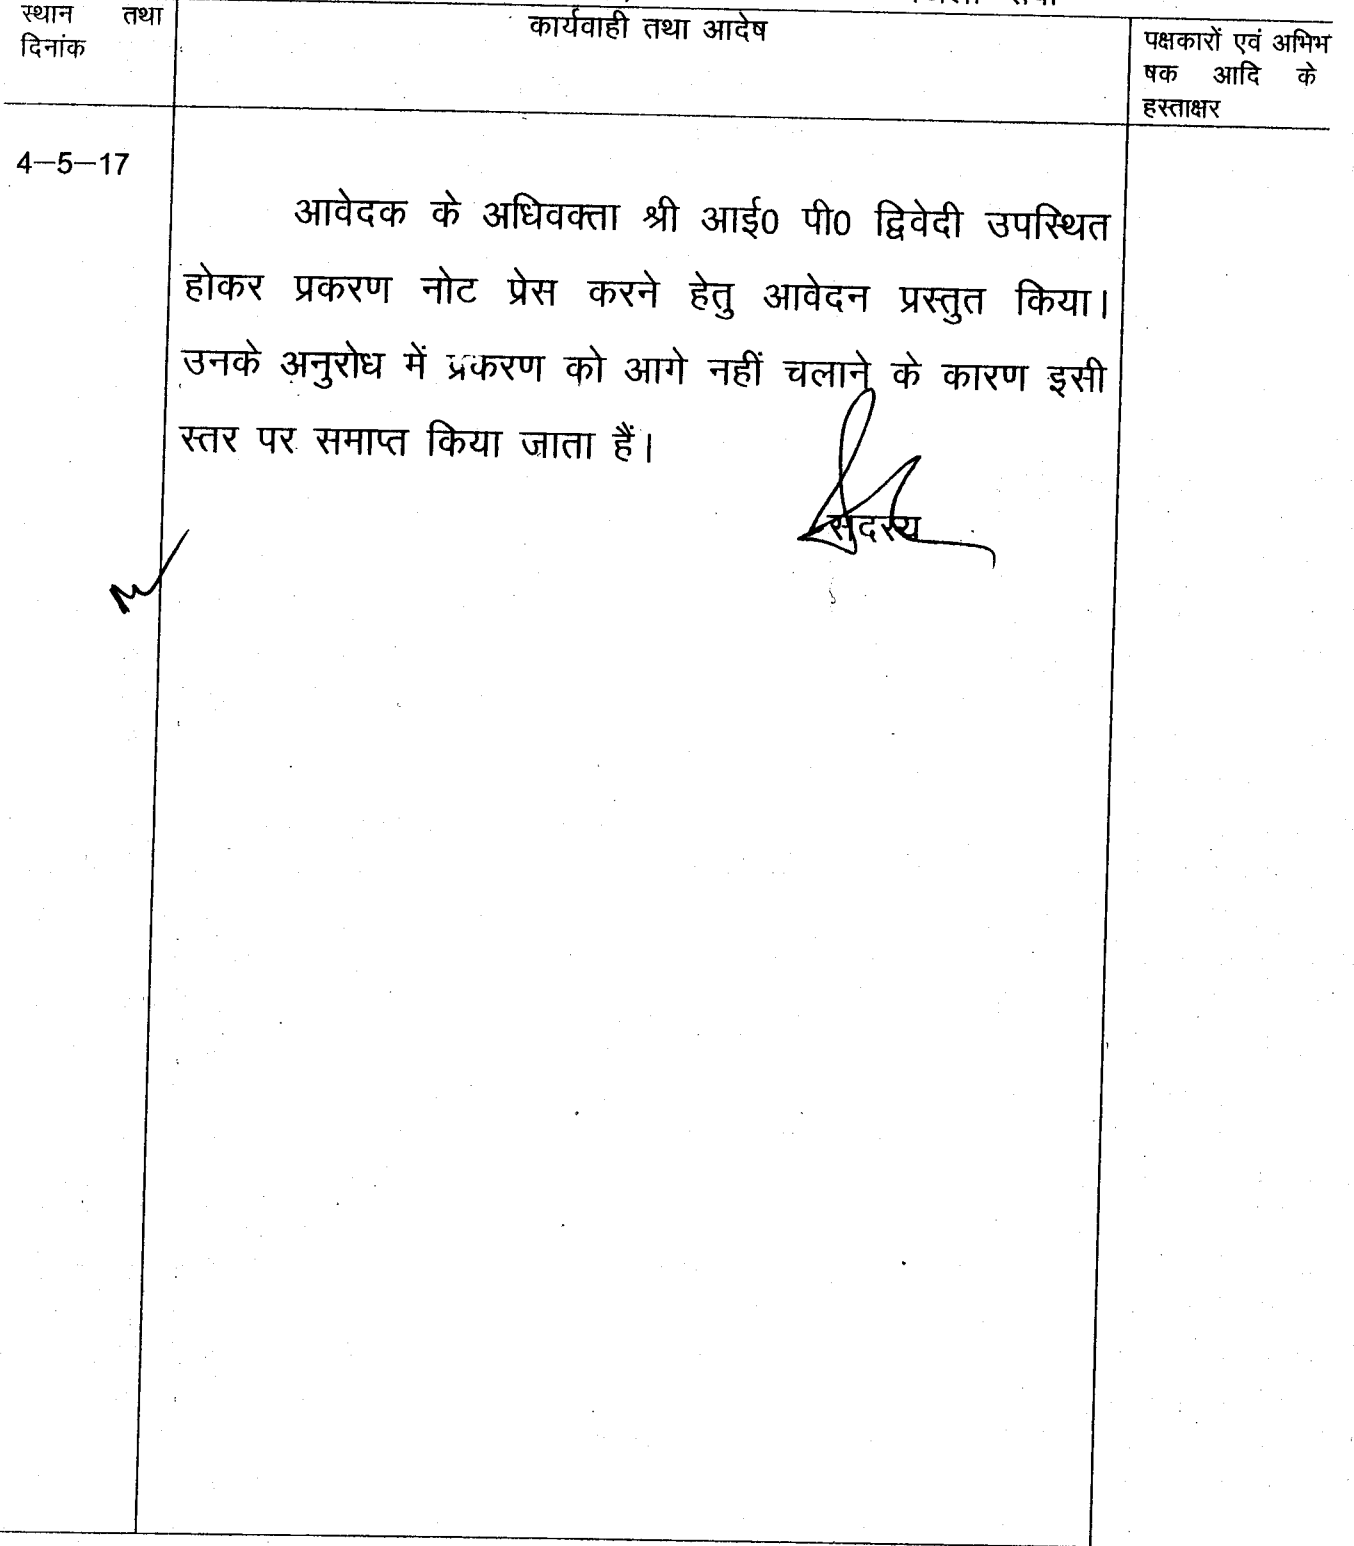 स्थान तथा
दिनांक
कार्यवाही तथा आदेष
पक्षकारों एवं अभिभ
षक आदि के
हस्ताक्षर
4-5-17
आवेदक के अधिवक्ता श्री आई0 पी0 द्विवेदी उपस्थित
होकर प्रकरण नोट प्रेस करने हेतु आवेदन प्रस्तुत किया।
उनके अनुरोध में प्रकरण को आगे नहीं चलाने के कारण इसी
स्तर पर समाप्त किया जाता हैं।
सदस्य